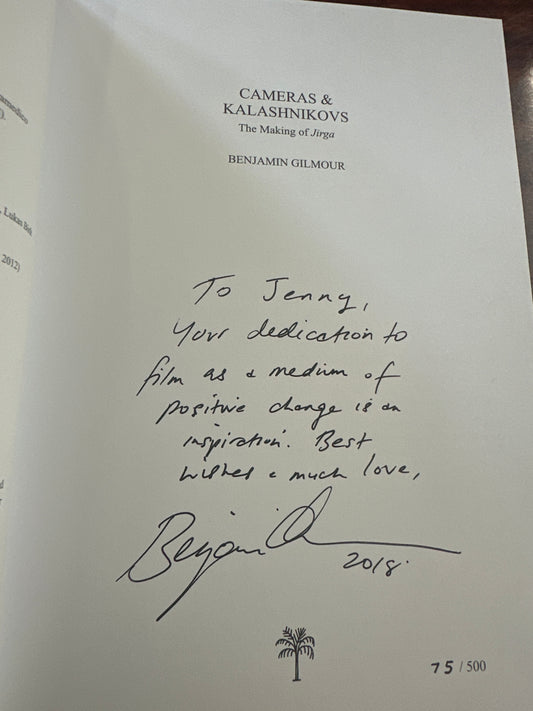 CAMERAS &
KALASHNIKOVS
The Making of Jirga
BENJAMIN GILMOUR
To Jenny,
Your dedication to
film as a medium of
positive change is an
inspiration. Best
wishes & much love,
Benjamin
2018.
75 / 500
2012)